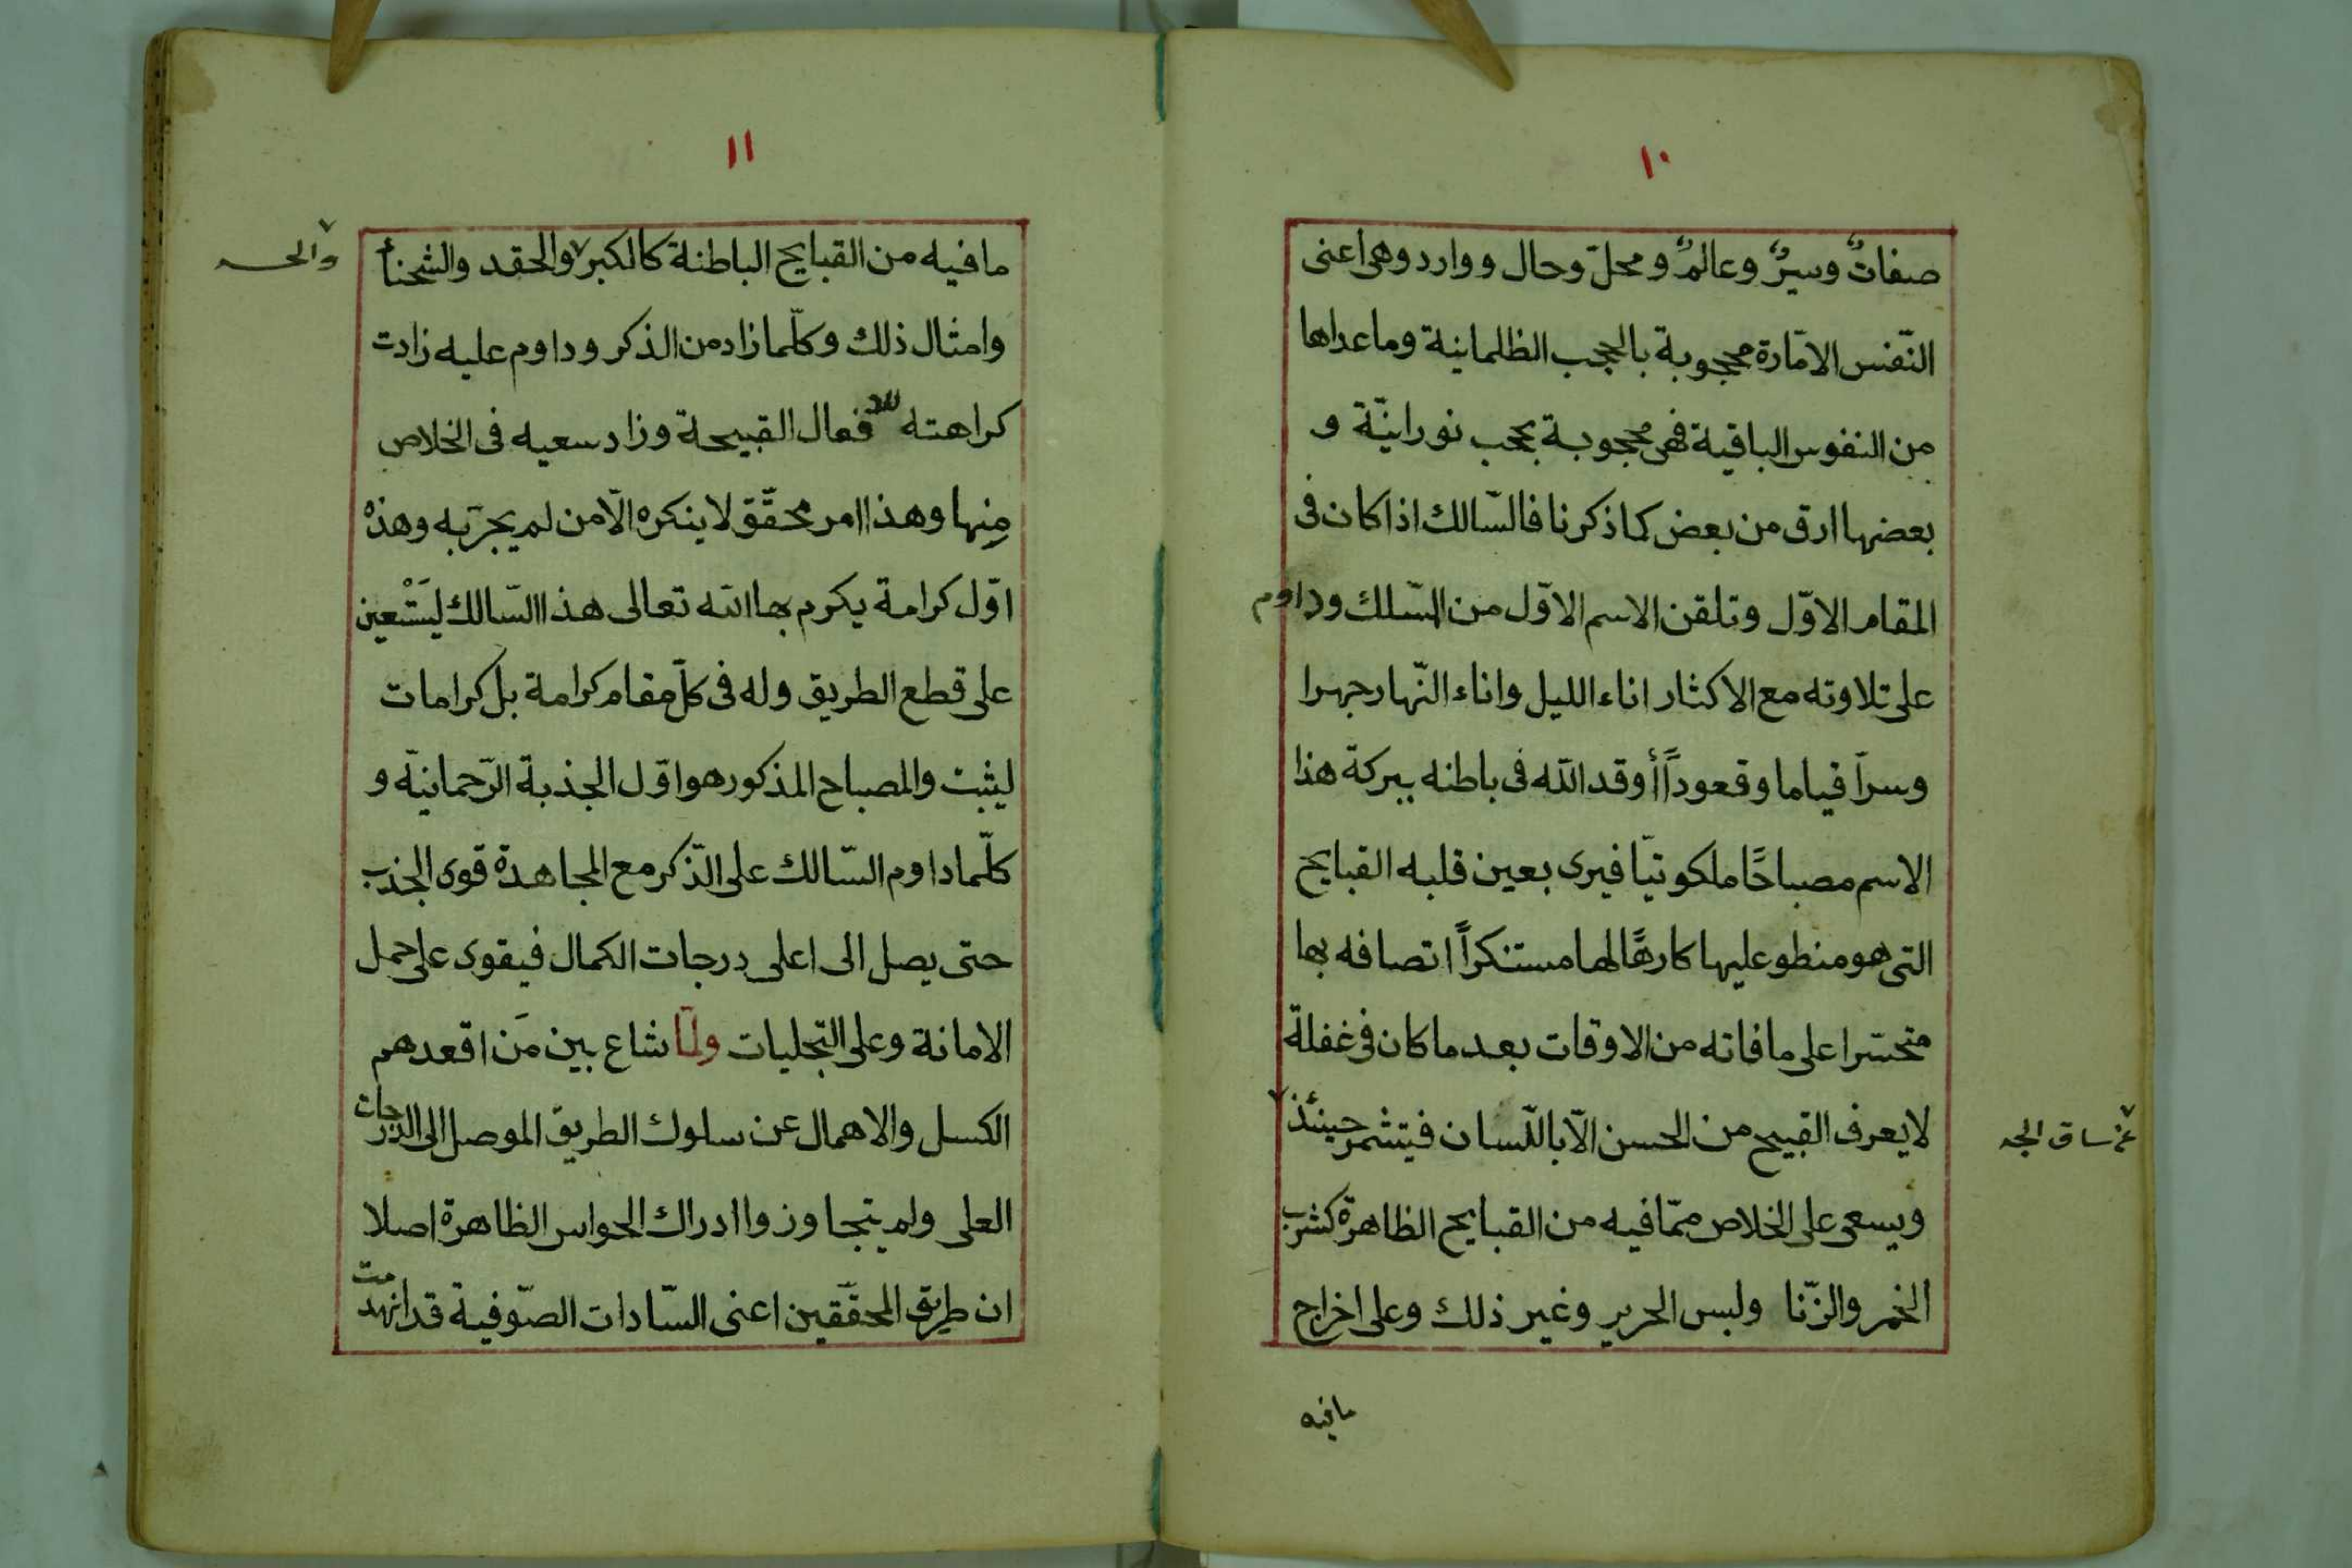 ١٠
صفاتٌ وسيرٌ وعالمٌ ومحلّ وحال ووارد وهى اعنى
النّفس الامّارة محجوبة بالحجب الظلمانية وماعداها
من النفوس الباقية فهى محجوبة بحجب نورانيّة و
بعضها ارق من بعض كما ذكرنا فالسّالك اذا كان فى
المقام الاوّل وتلقن الاسم الاوّل من السّلك وداوم
على تلاوته مع الاكثار اناء الليل واناء النّهار جهرا
وسرّا قياما وقعوداً أوقد الله فى باطنه ببركة هذا
الاسم مصباحًا ملكوتيّا فيرى بعين قلبه القبايح
التى هو منطو عليها كارهًا لها مستنكراً اتصافه بها
متحسّرا على مافاته من الاوقات بعد ما كان فى غفلة
لايعرف القبيح من الحسن الّا باللّسان فيتشمر حينئذ
عن ساق الجد
ويسعى على الخلاص ممّا فيه من القبايح الظاهرة كشرب
الخمر والزّنا ولبس الحرير وغير ذلك وعلى اخراج
مافيه
١١
مافيه من القبايح الباطنة كالكبر والحقد والشحنأ
وامثال ذلك وكلّما زاد من الذكر وداوم عليه زادت
كراهته فعال القبيحة وزاد سعيه فى الخلاص
مِنها وهذا امر محقّق لا ينكره الّا من لم يجرّبه وهذه
اوّل كرامة يكرم بها الله تعالى هذا السّالك ليَسْتعين
على قطع الطريق وله فى كلّ مقام كرامة بل كرامات
ليثبت والمصباح المذكور هو اوّل الجذبة الرّحمانيّة و
كلّما داوم السّالك على الذّكر مع المجاهدة قوى الجذب
حتى يصل الى اعلى درجات الكمال فيقوى على حمل
الامانة وعلى التّجليات ولمّا شاع بين مَن اقعدهم
الكسل والاهمال عن سلوك الطريق الموصل الى الدرجات
العلى ولم يتجاوزوا ادراك الحواس الظاهرة اصلا
ان طريق المحقّقين اعنى السّادات الصّوفية قد انهدمت